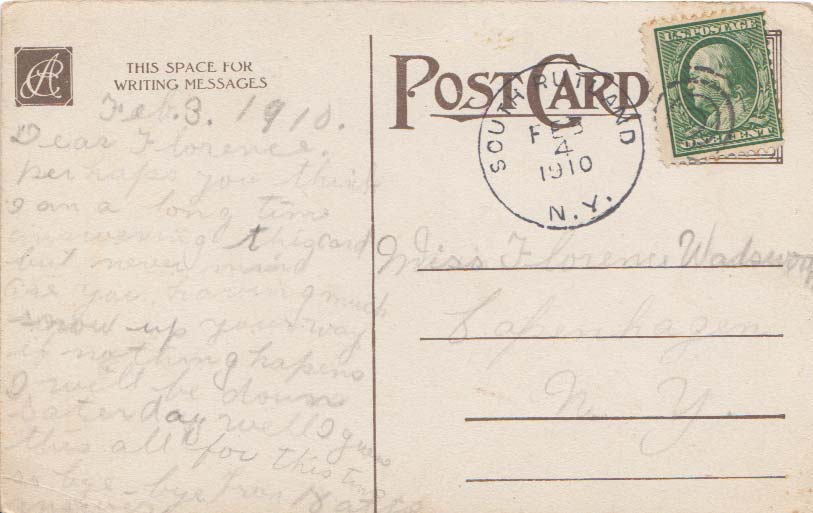 THIS SPACE FOR
WRITING MESSAGES
POST CARD
U.S. POSTAGE
ONE CENT
SOUTH RUTLAND
FEB
4
1910
N.Y.
Feb. 3. 1910.
Dear Florence.
perhaps you think
I am a long time
answering this card
but never mind
are you having much
snow up your way
if nothing hapens
I will be down
Saterday well I guess
this all for this time
so bye-bye from
answer
Miss Florence Wadswor
Copenhagen
N. Y.